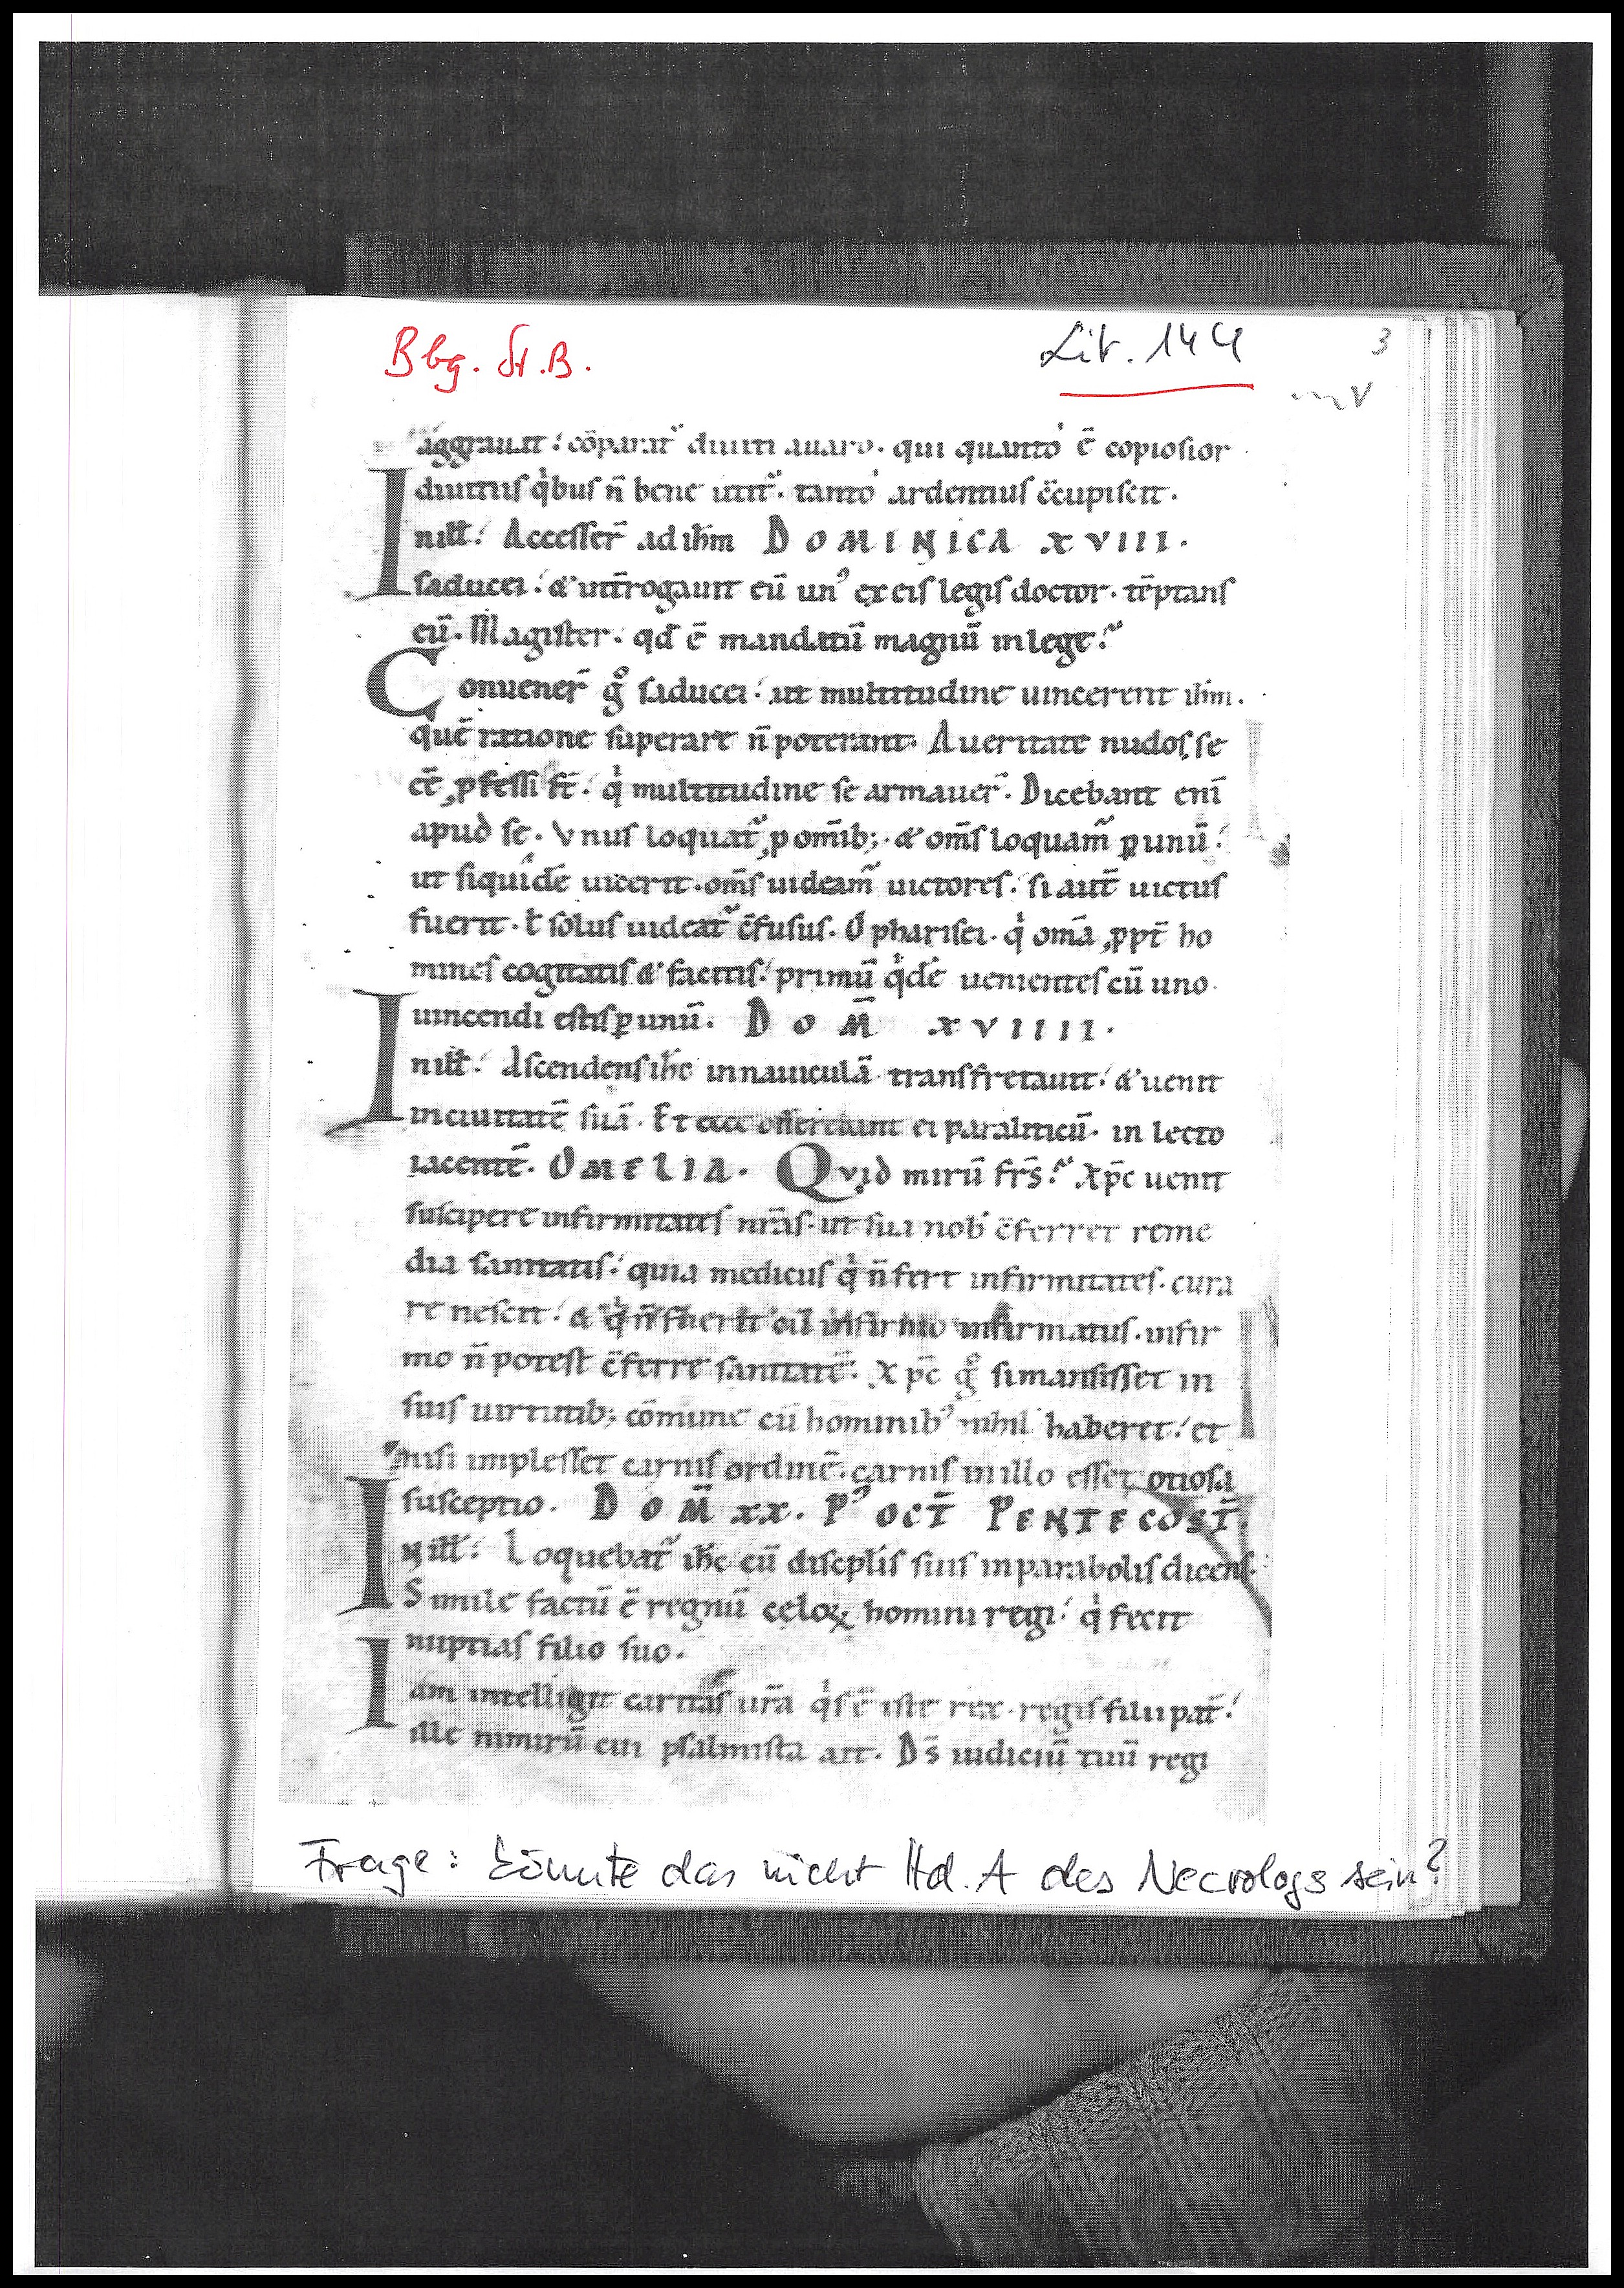 Bbg. St. B.
Lit. 144
3
aggrauat: cōparat᷑ diuiti auaro. qui quanto ē copiosior
diuitiis q̇bus n̄ bene utit᷑. tanto ardentius c̄cupiscit.
In illt̄: Accesser̄ ad ih̄m DOMINICA XVIII.
saducei: & int̄rogauit eū un᾽ ex eis legis doctor. tēptans
eū. Magister. qd̄ ē mandatū magnū in lege?
Conuener̄ gͦ saducei: ut multitudine uincerent ih̄m.
quē ratione superare n̄ poterant. A ueritate nudos se
ēē ꝓfessi st̄: q̇ multitudine se armauer̄. Dicebant enī
apud se. Vnus loquat᷑ ꝓ om̄ib; & om̄s loquam᷑ ꝑ unū:
ut siquidē uicerit. om̄s uideam᷑ uictores. si aut̄ uictus
fuerit. ł solus uideat᷑ c̄fusus. O pharisei. q̇ om̄a ꝓpt̄ ho
mines cogitatis & facitis: primū q̇dē uenientes cū uno
uincendi estis ꝑ unū. DOM̄ XVIIII.
In illt̄: Ascendens ih̄c in nauiculā transfretauit: & uenit
in ciuitatē suā. Et ecce offerebant ei paraliticū. in lecto
iacentē. OMELIA. Qvid mirū fr̄s? Xp̄c uenit
suscipere infirmitates nr̄as. ut sua nob᾽ c̄ferret reme
dia sanitatis: quia medicus q̇ n̄ fert infirmitates. cura
re nescit: & q̇ n̄ fuerit cū infirmo infirmatus. infir
mo n̄ potest c̄ferre sanitatē. Xp̄c gͦ si mansisset in
suis uirtutib; cōmune cū hominib᾽ nihil haberet: et
nisi implesset carnis ordinē. carnis in illo esset otiosa
susceptio. DOM̄ XX. P᾽ OCT̄ PENTECOST̄.
IN illt̄: Loquebat᷑ ih̄c cū discipl̄is suis in parabolis dicens.
Simile factū ē regnū celoꝝ homini regi: q̇ fecit
nuptias filio suo.
Iam intelligit caritas ur̄a q̇s ē iste rex. regis filii pat̄:
ille nimirū cui psalmista ait. Ds̄ iudiciū tuū regi
Frage: Könnte das nicht Hd. A des Necrologs sein?